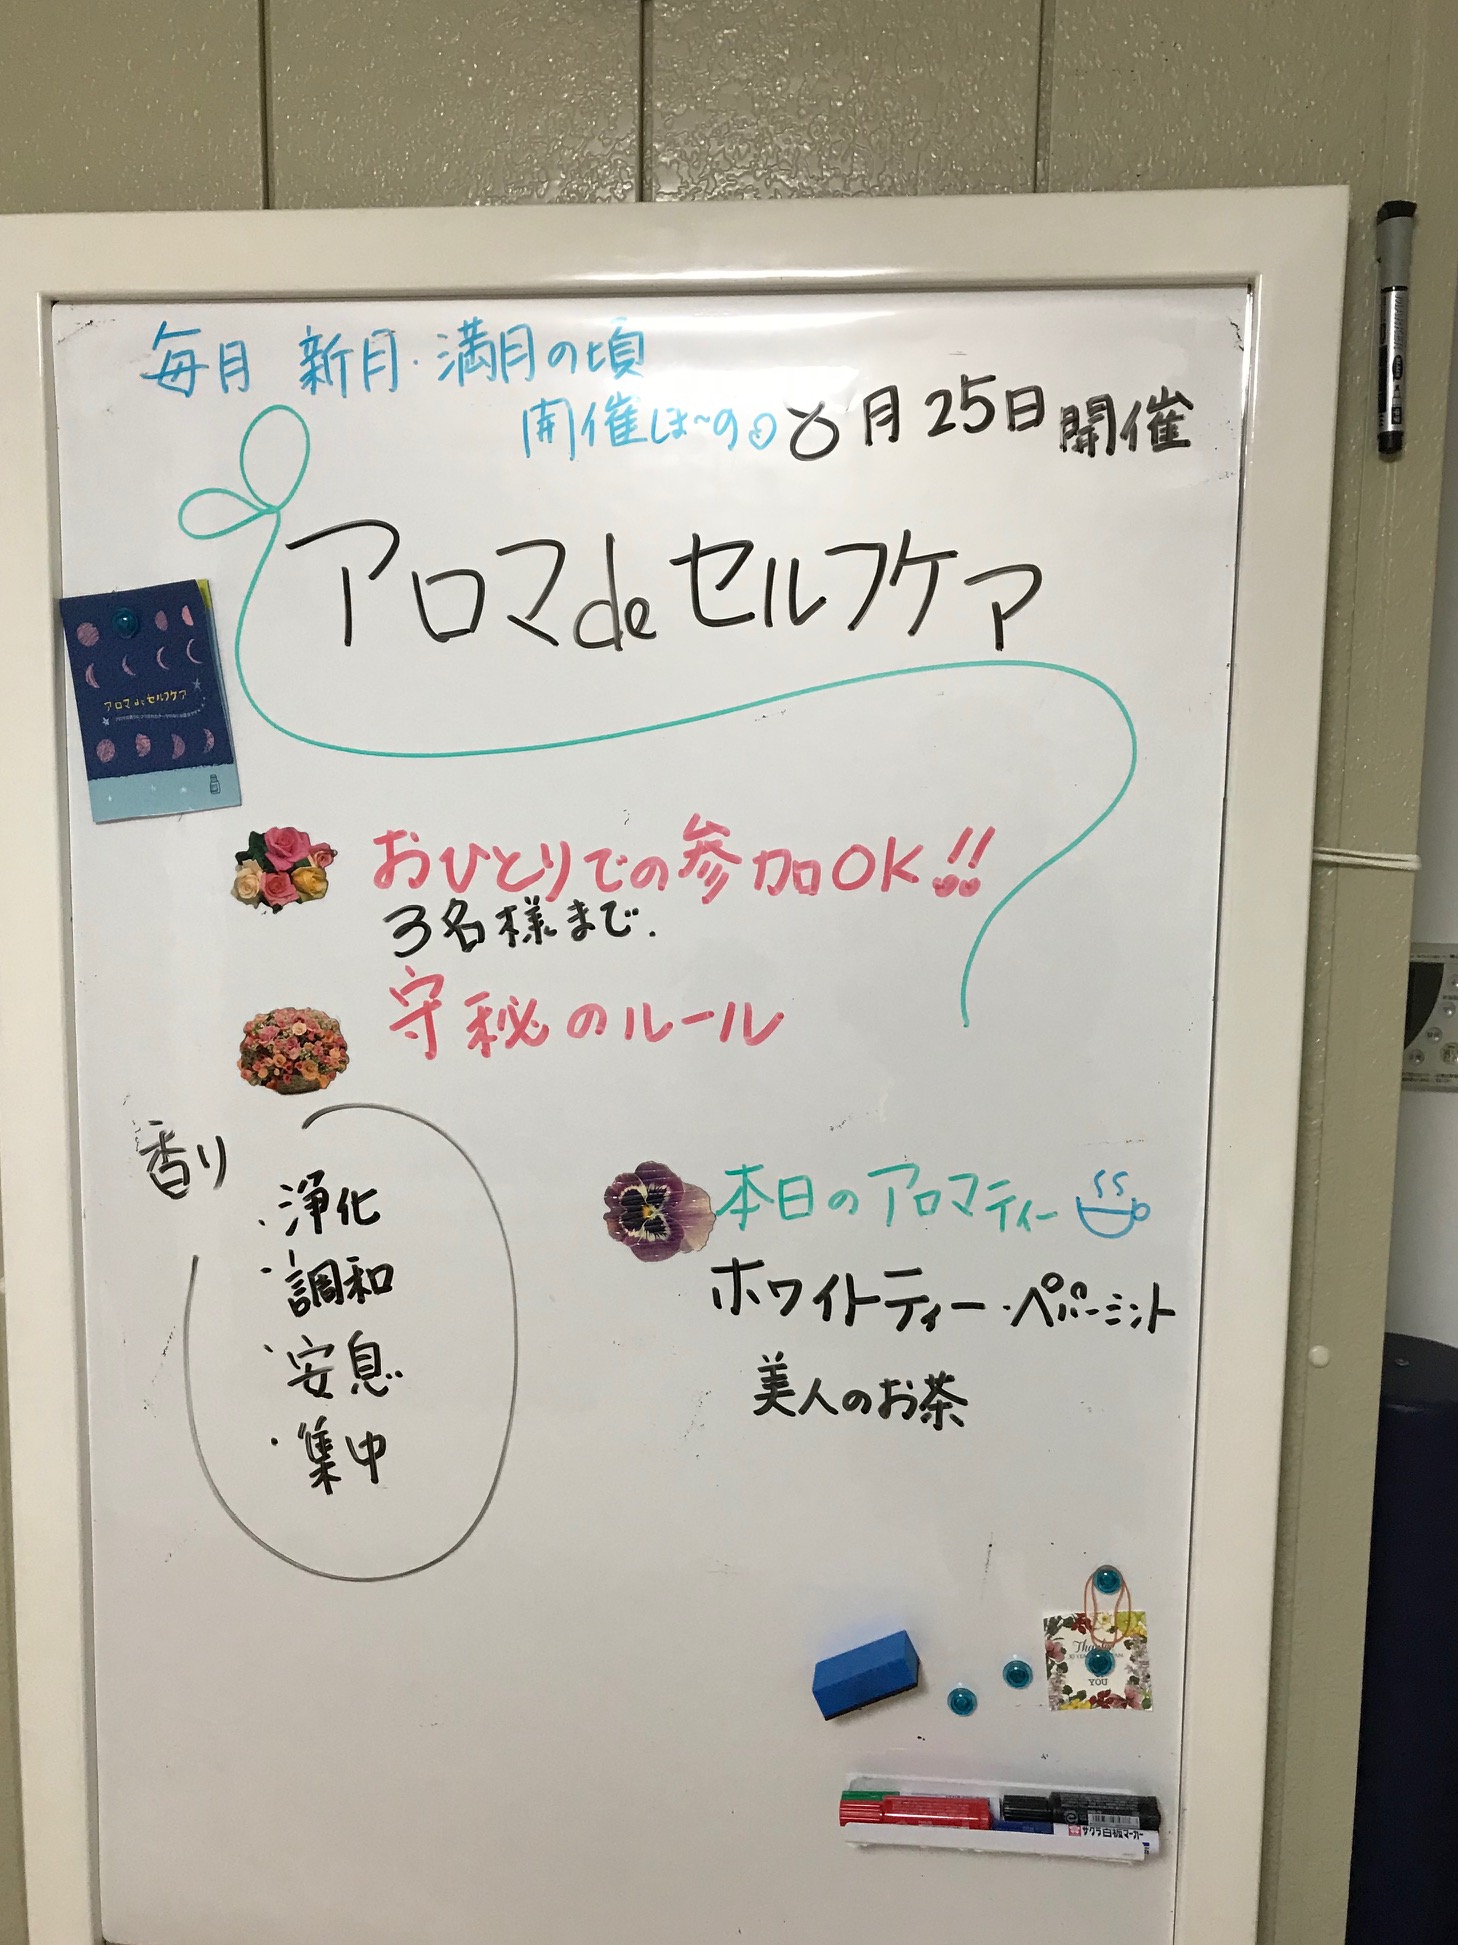 毎月 新月・満月の頃
開催しま〜の
8月25日開催
アロマdeセルフケア
アロマdeセルフケア
おひとりでの参加OK!!
3名様まで.
守秘のルール
香り
・浄化
・調和
・安息
・集中
本日のアロマティー
ホワイトティー・ペパーミント
美人のお茶
YOU
サクラ白板マーカー